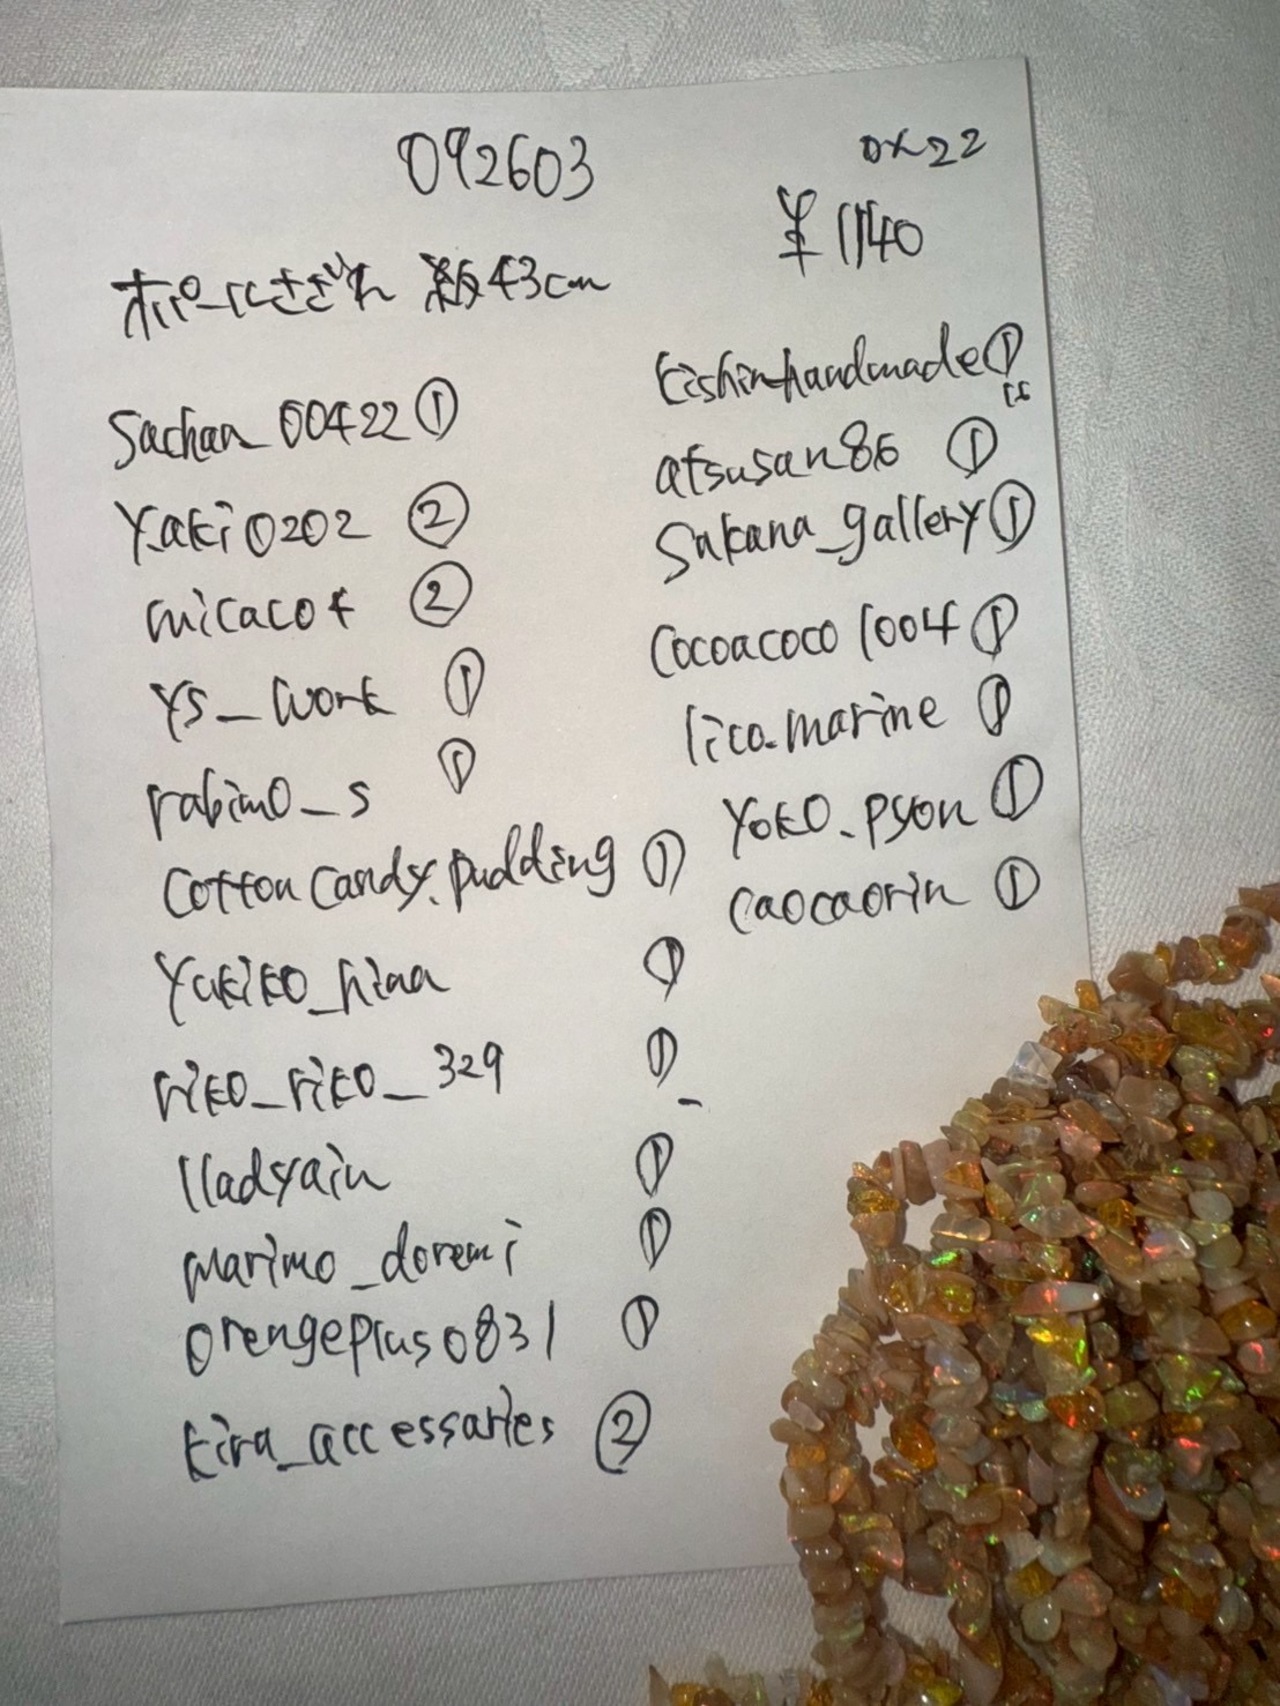 092603
0x22
¥1140
オパールさざれ 約43cm
Sachan_00422 ①
Yaki0202 ②
micaco4 ②
YS_work ①
rabimo_s ①
Cottoncandy.pudding ①
Yukiko_hina ①
riko_riko_329 ①
lladyain ①
marimo_doremi ①
orengeplus0831 ①
kira_accessaries ②
kishin-handmade ①
atsusan86 ①
Sakana_gallery ①
Cocoacoco1004 ①
lico.marine ①
Yoko.pyon ①
caocaorin ①